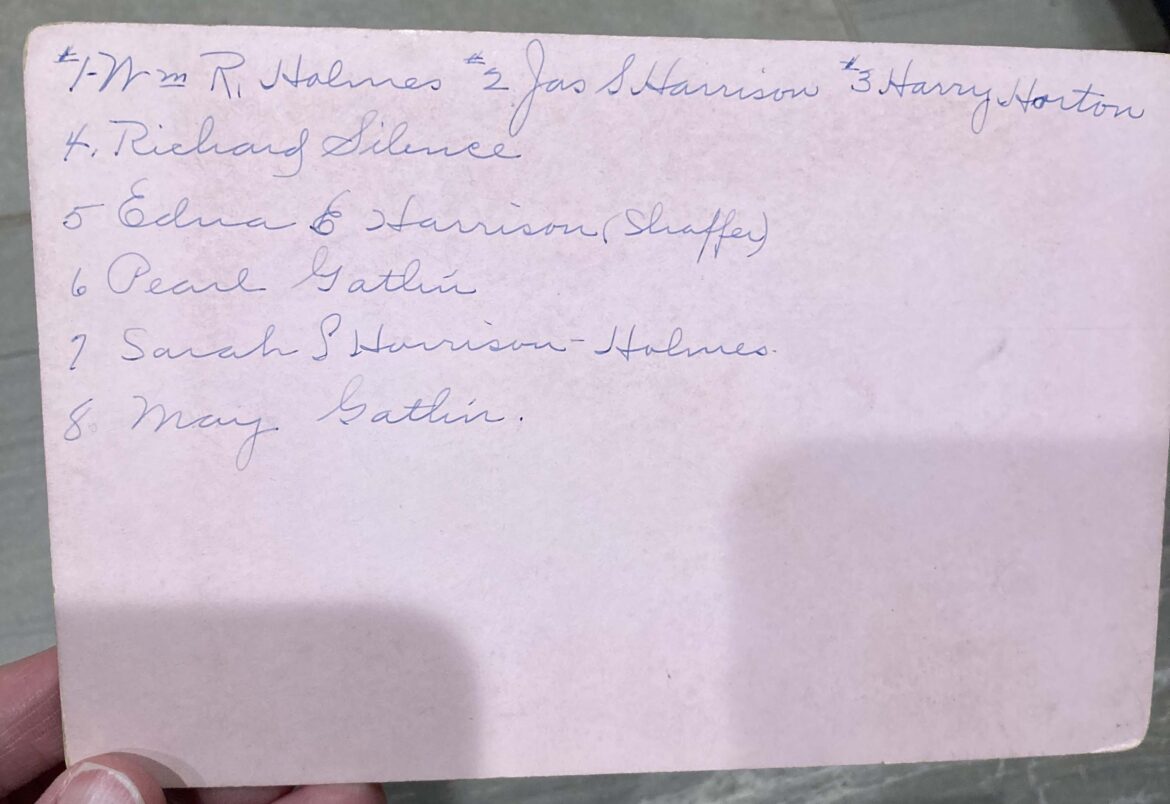 #1-Wm R. Holmes #2 Jas S Harrison #3 Harry Horton
4. Richard Silence
5 Edna E Harrison (Shaffer)
6 Pearl Gatlin
7 Sarah S Harrison-Holmes.
8. May Gatlin.